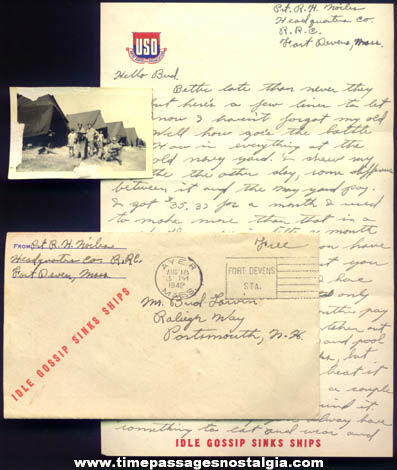 Pvt. R. H. Noiles
Headquarters Co.
R.R.C.
Fort Devens, Mass.
USO
Hello Bud.
Better late than never they
but here's a few lines to let
now I haven't forgot my old
Well how goes the battle
How is everything at the
old navy yard. I saw my
the other day, some difference
between it and the navy yard pay.
I got $35.33 for a month & I used
to make more than that in a
have
you
have
only
pay
then out
and pool
but
beat it
a couple
mind it.
always have
something to eat and wear and
IDLE GOSSIP SINKS SHIPS
FROM Pvt. R. H. Noiles
Headquarters Co. R.R.C.
Fort Devens, Mass
Free
AYER
AUG 18
5 PM
1942
MASS.
FORT DEVENS
STA.
Mr. Bud
Raleigh Way
Portsmouth, N.H.
IDLE GOSSIP SINKS SHIPS
www.timepassagesnostalgia.com